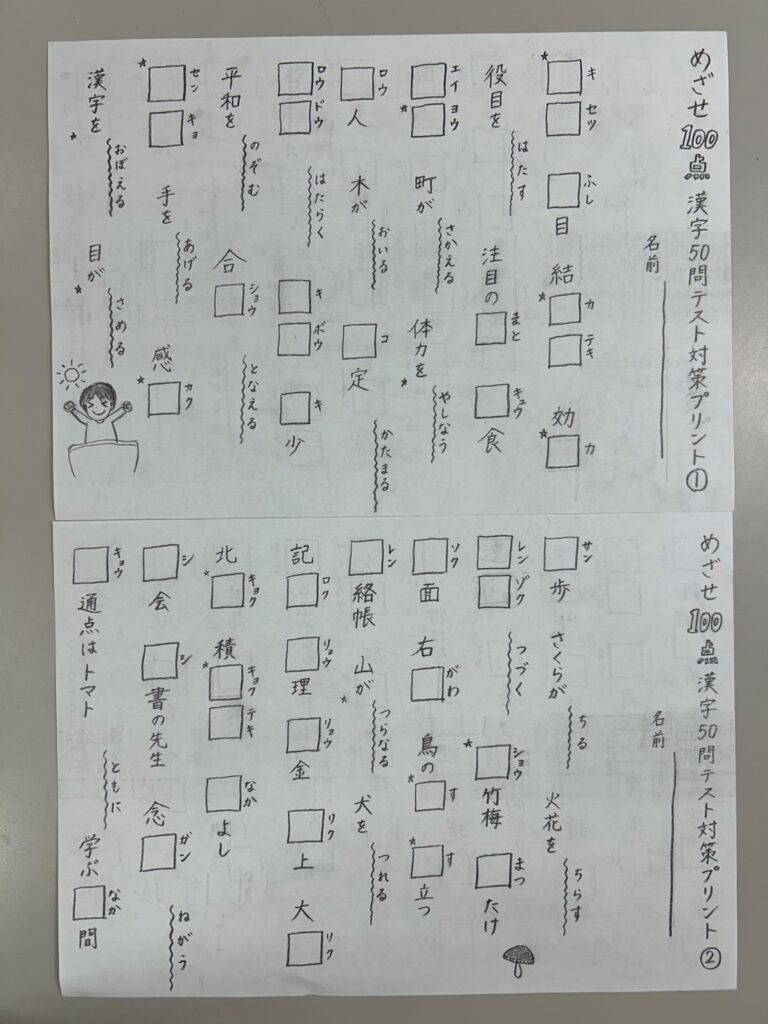 めざせ100点 漢字50問テスト対策プリント①
名前
キ セツ ふし 目 結 カ テキ 効 カ
役目を はたす 注目の まと キュウ 食
エイ ヨウ 町が さかえる 体力を やしなう
ロウ 人 木が おいる コ 定 かたまる
ロウ ドウ はたらく キ ボウ キ 少
平和を のぞむ 合 ショウ となえる
セン キョ 手を あげる 感 カク
漢字を おぼえる 目が さめる
めざせ100点 漢字50問テスト対策プリント②
名前
サン 歩 さくらが ちる 火花を ちらす
レン ゾク つづく ショウ 竹梅 まつ たけ
ソク 面 右 がわ 鳥の す す 立つ
レン 絡帳 山が つらなる 犬を つれる
記 ロク リョウ 理 リョウ 金 リク 上 大 リク
北 キョク 積 キョク テキ なか よし
シ 会 シ 書の先生 念 ガン ねがう
キョウ 通点はトマト ともに 学ぶ なか 間